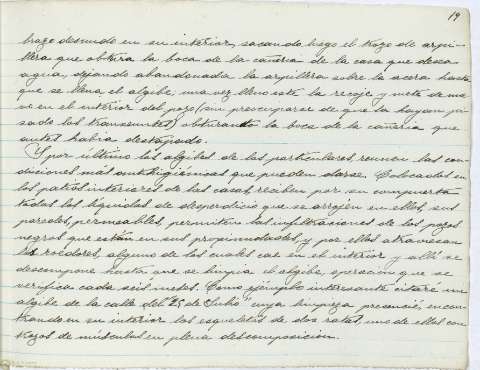 19
brazo desnudo en su interior, sacando luego el trozo de arpi-
llera que obtura la boca de la cañeria de la casa que desea
agua, dejando abandonada la arpillera sobre la acera hasta
que se llena el algibe, una vez lleno este la recoje y mete de nue
vo en el interior del pozo (sin preocuparse de que la hayan pi-
sado los transeuntes) obturando la boca de la cañeria que
antes habia destapado.
Y por último los algibes de los particulares, reunen las con-
diciones más antihigiénicas que pueden darse. Colocados en
los patios interiores de las casas, reciben por su compuerta
todos los liquidos de desperdicio que se arrojen en ellos, sus
paredes, permeables, permiten las infiltraciones de los pozos
negros que están en sus proximidades, y por ellos atraviesan
los roedores, alguno de los cuales cae en el interior y alli se
descompone hasta que se limpia el algibe, operacion que se
verifica cada seis meses. Como ejemplo interesante citaré un
algibe de la calle del "25 de Julio" cuya limpieza presencié, encon
trando en su interior los esqueletos de dos ratas, uno de ellos con
trozos de músculos en plena descomposicion.